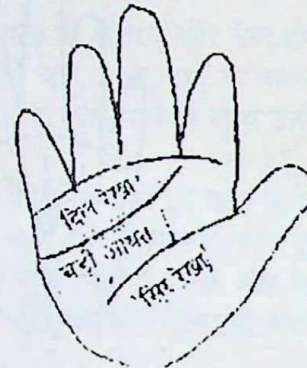 'दिल रेखा'
बड़ी आयत
'सिर रेखा'